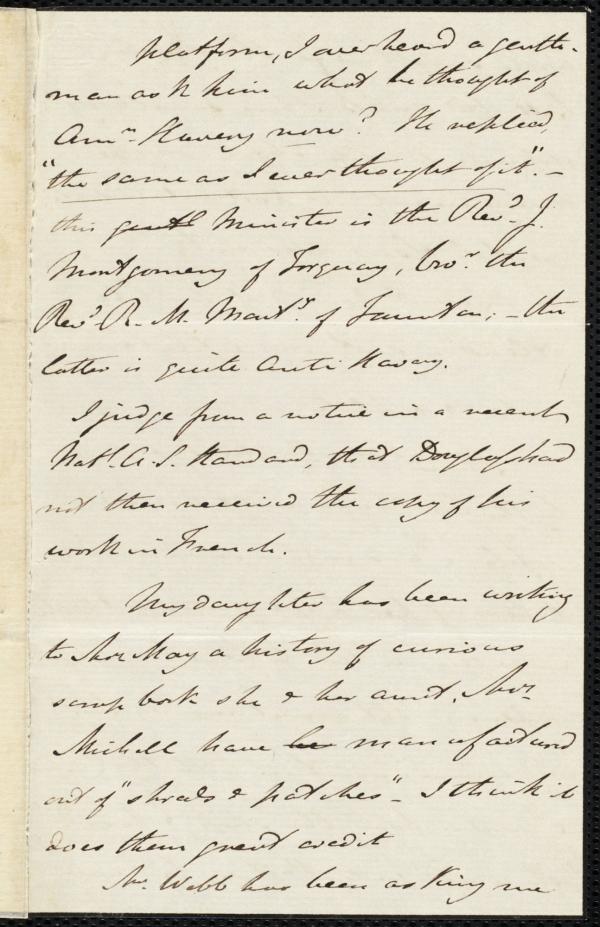 platform, I overheard a gentle-
man ask him what he thought of
Amn. Slavery now? He replied,
"the same as I ever thought of it". —
this gentl Minister is the Revd. J.
Montgomery of Torquay, bror. the
Revd. R. M. Monty. of Taunton; — the
latter is quite anti slavery.
I judge from a notice in a recent
Natl. A. S. Standard, that Douglass had
not then received the copy of his
work in French.
My daughter has been writing
to Mr May a history of curious
scrap book she & her aunt, Mrs
Michell have he manufactured
out of "shreds & patches" — I think it
does them great credit
Mr. Webb has been asking me